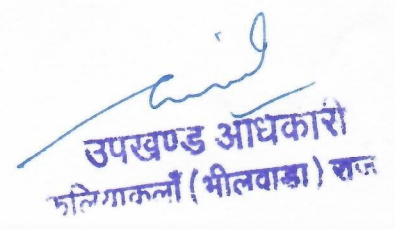 उपखण्ड अधिकारी
फुलियाकलाँ (भीलवाडा) राज